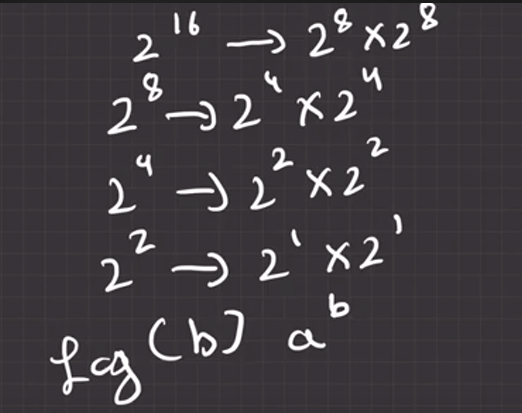 2^16 → 2^8 × 2^8
2^8 → 2^4 × 2^4
2^4 → 2^2 × 2^2
2^2 → 2^1 × 2^1
Log(b) a^b